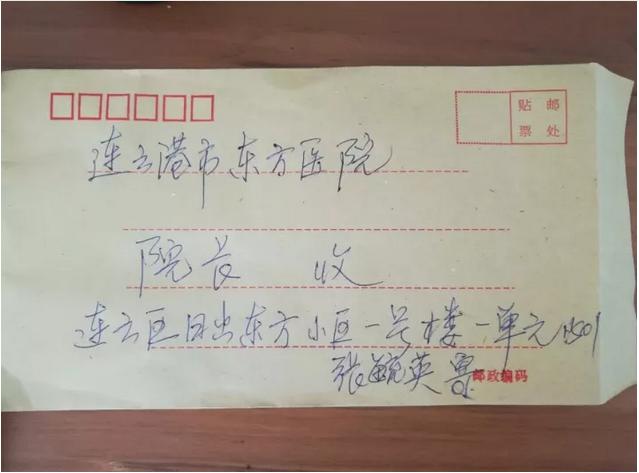 贴 邮
票 处
连云港市东方医院
院长 收
连云区日出东方小区一号楼一单元1501
张毓英寄
邮政编码